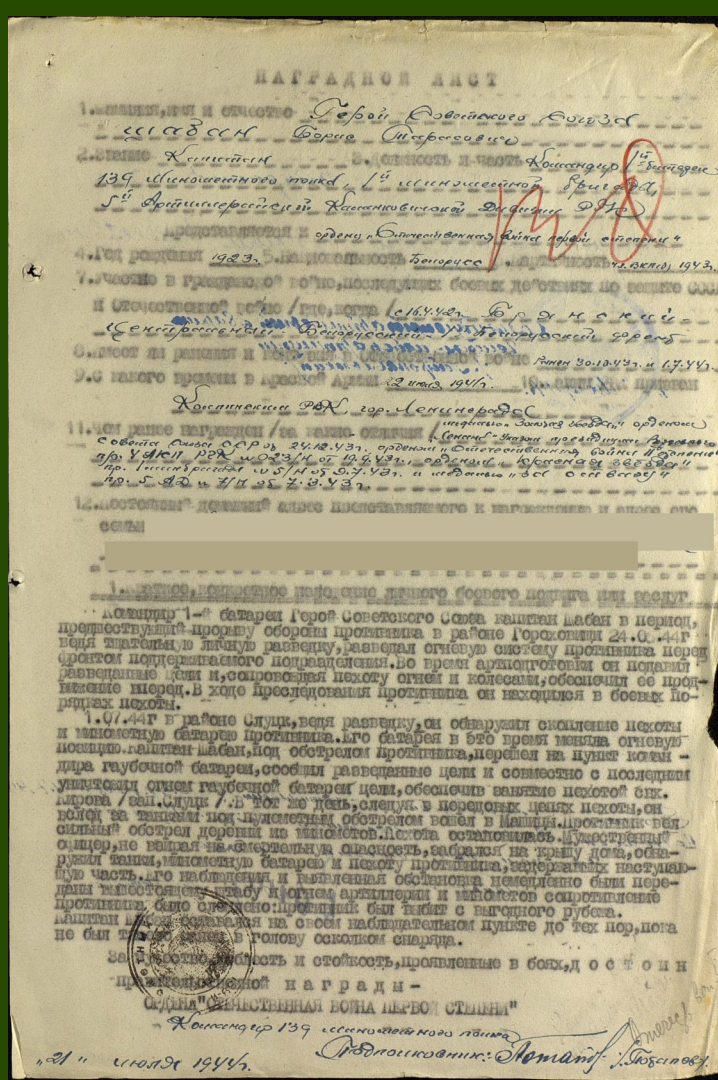 НАГРАДНОЙ ЛИСТ
1. Фамилия, имя и отчество Герой Советского Союза
Шабан Борис Тарасович
2. Звание Капитан 3. Должность и часть Командир 1й батареи
139 Минометного полка, 1й минометной бригады,
5й Артиллерийской Калинковичской Дивизии РГК
Представляется к ордену "Отечественная война первой степени"
4. Год рождения 1923г. 5. Национальность Белорусс 6. Партийность чл. ВКП(б) 1943г.
7. Участие в гражданской войне, последующих боевых действиях по защите СССР
и Отечественной войне /где, когда/ с 16.4.42г. Брянский-
Центральный- Белорусский- Белорусский фронт
8. Имеет ли ранения и контузии в Отечественной войне Ранен 30.10.43г. и 1.7.44г.
9. С какого времени в Красной Армии 22 июля 1941г. 10. Каким РВК призван
Колпинским РВК, гор. Ленинграда
11. Чем ранее награжден /за какие отличия/ медалью "Золотая Звезда", орденом
"Ленина"- Указом президиума Верховного
Совета Союза ССР от 24.12.43г. орденом "Отечественная война II степени"
пр. 4 АКП РГК № 023/н от 19.9.43г., орденом "Красная звезда"
пр. 1 минбригады № 5/н от 9.7.43г. и медалью "За отвагу"
пр. 5 АД № 7/н от 7.3.43г.
12. Постоянный домашний адрес представляемого к награждению и адрес его
семьи
1. Краткое, конкретное изложение личного боевого подвига или заслуг
Командир 1-й батареи Герой Советского Союза капитан Шабан в период,
предшествующий прорыву обороны противника в районе Гороховищи 24.06.44г
ведя тщательную личную разведку, разведал огневую систему противника перед
фронтом поддерживаемого подразделения. Во время артподготовки он подавил
разведанные цели и, сопровождая пехоту огнем и колесами, обеспечил ее прод-
вижение вперед. В ходе преследования противника он находился в боевых по-
рядках пехоты.
1.07.44г в районе Слуцк, ведя разведку, он обнаружил скопление пехоты
и минометную батарею противника. Его батарея в это время меняла огневую
позицию. Капитан Шабан, под обстрелом противника, перешел на пункт коман -
дира гаубочной батареи, сообщил разведанные цели и совместно с последним
уничтожил огнем гаубочной батареи цели, обеспечив занятие пехотой свх.
Кирова /зап. Слуцк/. В тот же день, следуя в передовых цепях пехоты, он
вслед за танками под пулеметным обстрелом вошел в Машицы. Противник вел
сильный обстрел деревни из минометов. Пехота остановилась. Мужественный
офицер, не взирая на смертельную опасность, взбрался на крышу дома, обна-
ружил танки, минометную батарею и пехоту противника, задержавших наступаю-
щую часть. Его наблюдения и выявленная обстановка немедленно были пере-
даны вышестоящему штабу и огнем артиллерии и минометов сопротивление
противника было сломлено: противник был выбит с выгодного рубежа.
Капитан Шабан оставался на своем наблюдательном пункте до тех пор, пока
не был ранен в голову осколком снаряда.
За мужество, доблесть и стойкость, проявленные в боях, достоин
правительственной награды -
ОРДЕНА "ОТЕЧЕСТВЕННАЯ ВОЙНА ПЕРВОЙ СТЕПЕНИ"
Командир 139 минометного полка
Подполковник: /Потапов/
"21" июля 1944г.